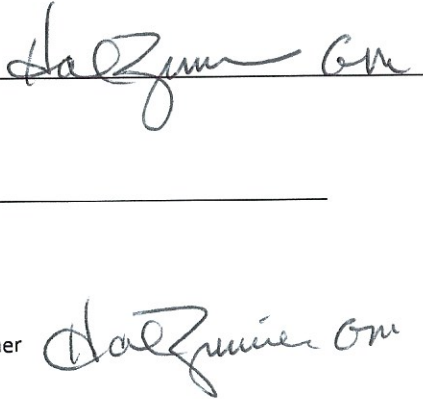 Hal Zimmer GM
ner Hal Zimmer GM